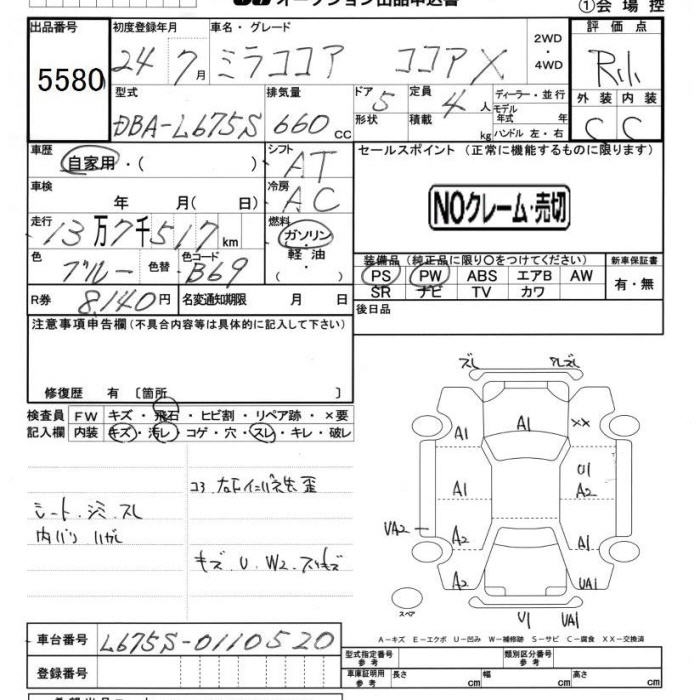 オークション出品申込書
①会場控
出品番号 初度登録年月 車名・グレード 2WD ・4WD 評価点
5580 24 7月 ミラココア ココアX R小
型式 排気量 ドア 形状 5 定員 積載 4人 kg ディーラー・並行 モデル年式 年 ハンドル 左・右 外装 内装
DBA-L675S 660 CC C C
車歴 自家用・( ) シフト AT セールスポイント (正常に機能するものに限ります)
車検 年 月( 日) 冷房 AC
NOクレーム・売切
走行 13万7千517km 燃料 ガソリン・軽油・( )
色 ブルー 色替 色コード B69
装備品 (純正品に限り〇をつけてください) 新車保証書
PS PW ABS エアB AW 有・無
SR ナビ TV カワ
R券 8,140円 名変通知期限 月 日
後日品
注意事項申告欄 (不具合内容等は具体的に記入して下さい)
修復歴 有 〔箇所 〕
検査員 FW キズ・飛石・ヒビ割・リペア跡・×要
記入欄 内装 キズ・汚レ・コゲ・穴・スレ・キレ・破レ
シート・シミ・スレ
内バリ ハガレ
キズ.U.W2.スリキズ
ズレ
A1 A1 XX
A1 U1 A2
UA2 A2 A1
A2 UA1
スペア U1 UA1
A－キズ E－エクボ U－凹み W－補修跡 S－サビ C－腐食 XX－交換済
車台番号 L675S-0110520
登録番号
型式指定番号 参考 類別区分番号 参考
車庫証明用 参考 長さ cm 幅 cm 高さ cm